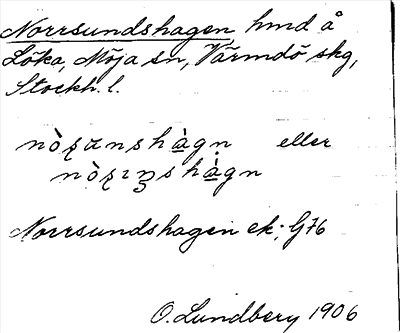 Norrsundshagen, hmd å
Löka, Möja sn, Värmdö skg,
Stockh. l.
eller
Norrsundshagen ek; G76
O. Lundberg 1906